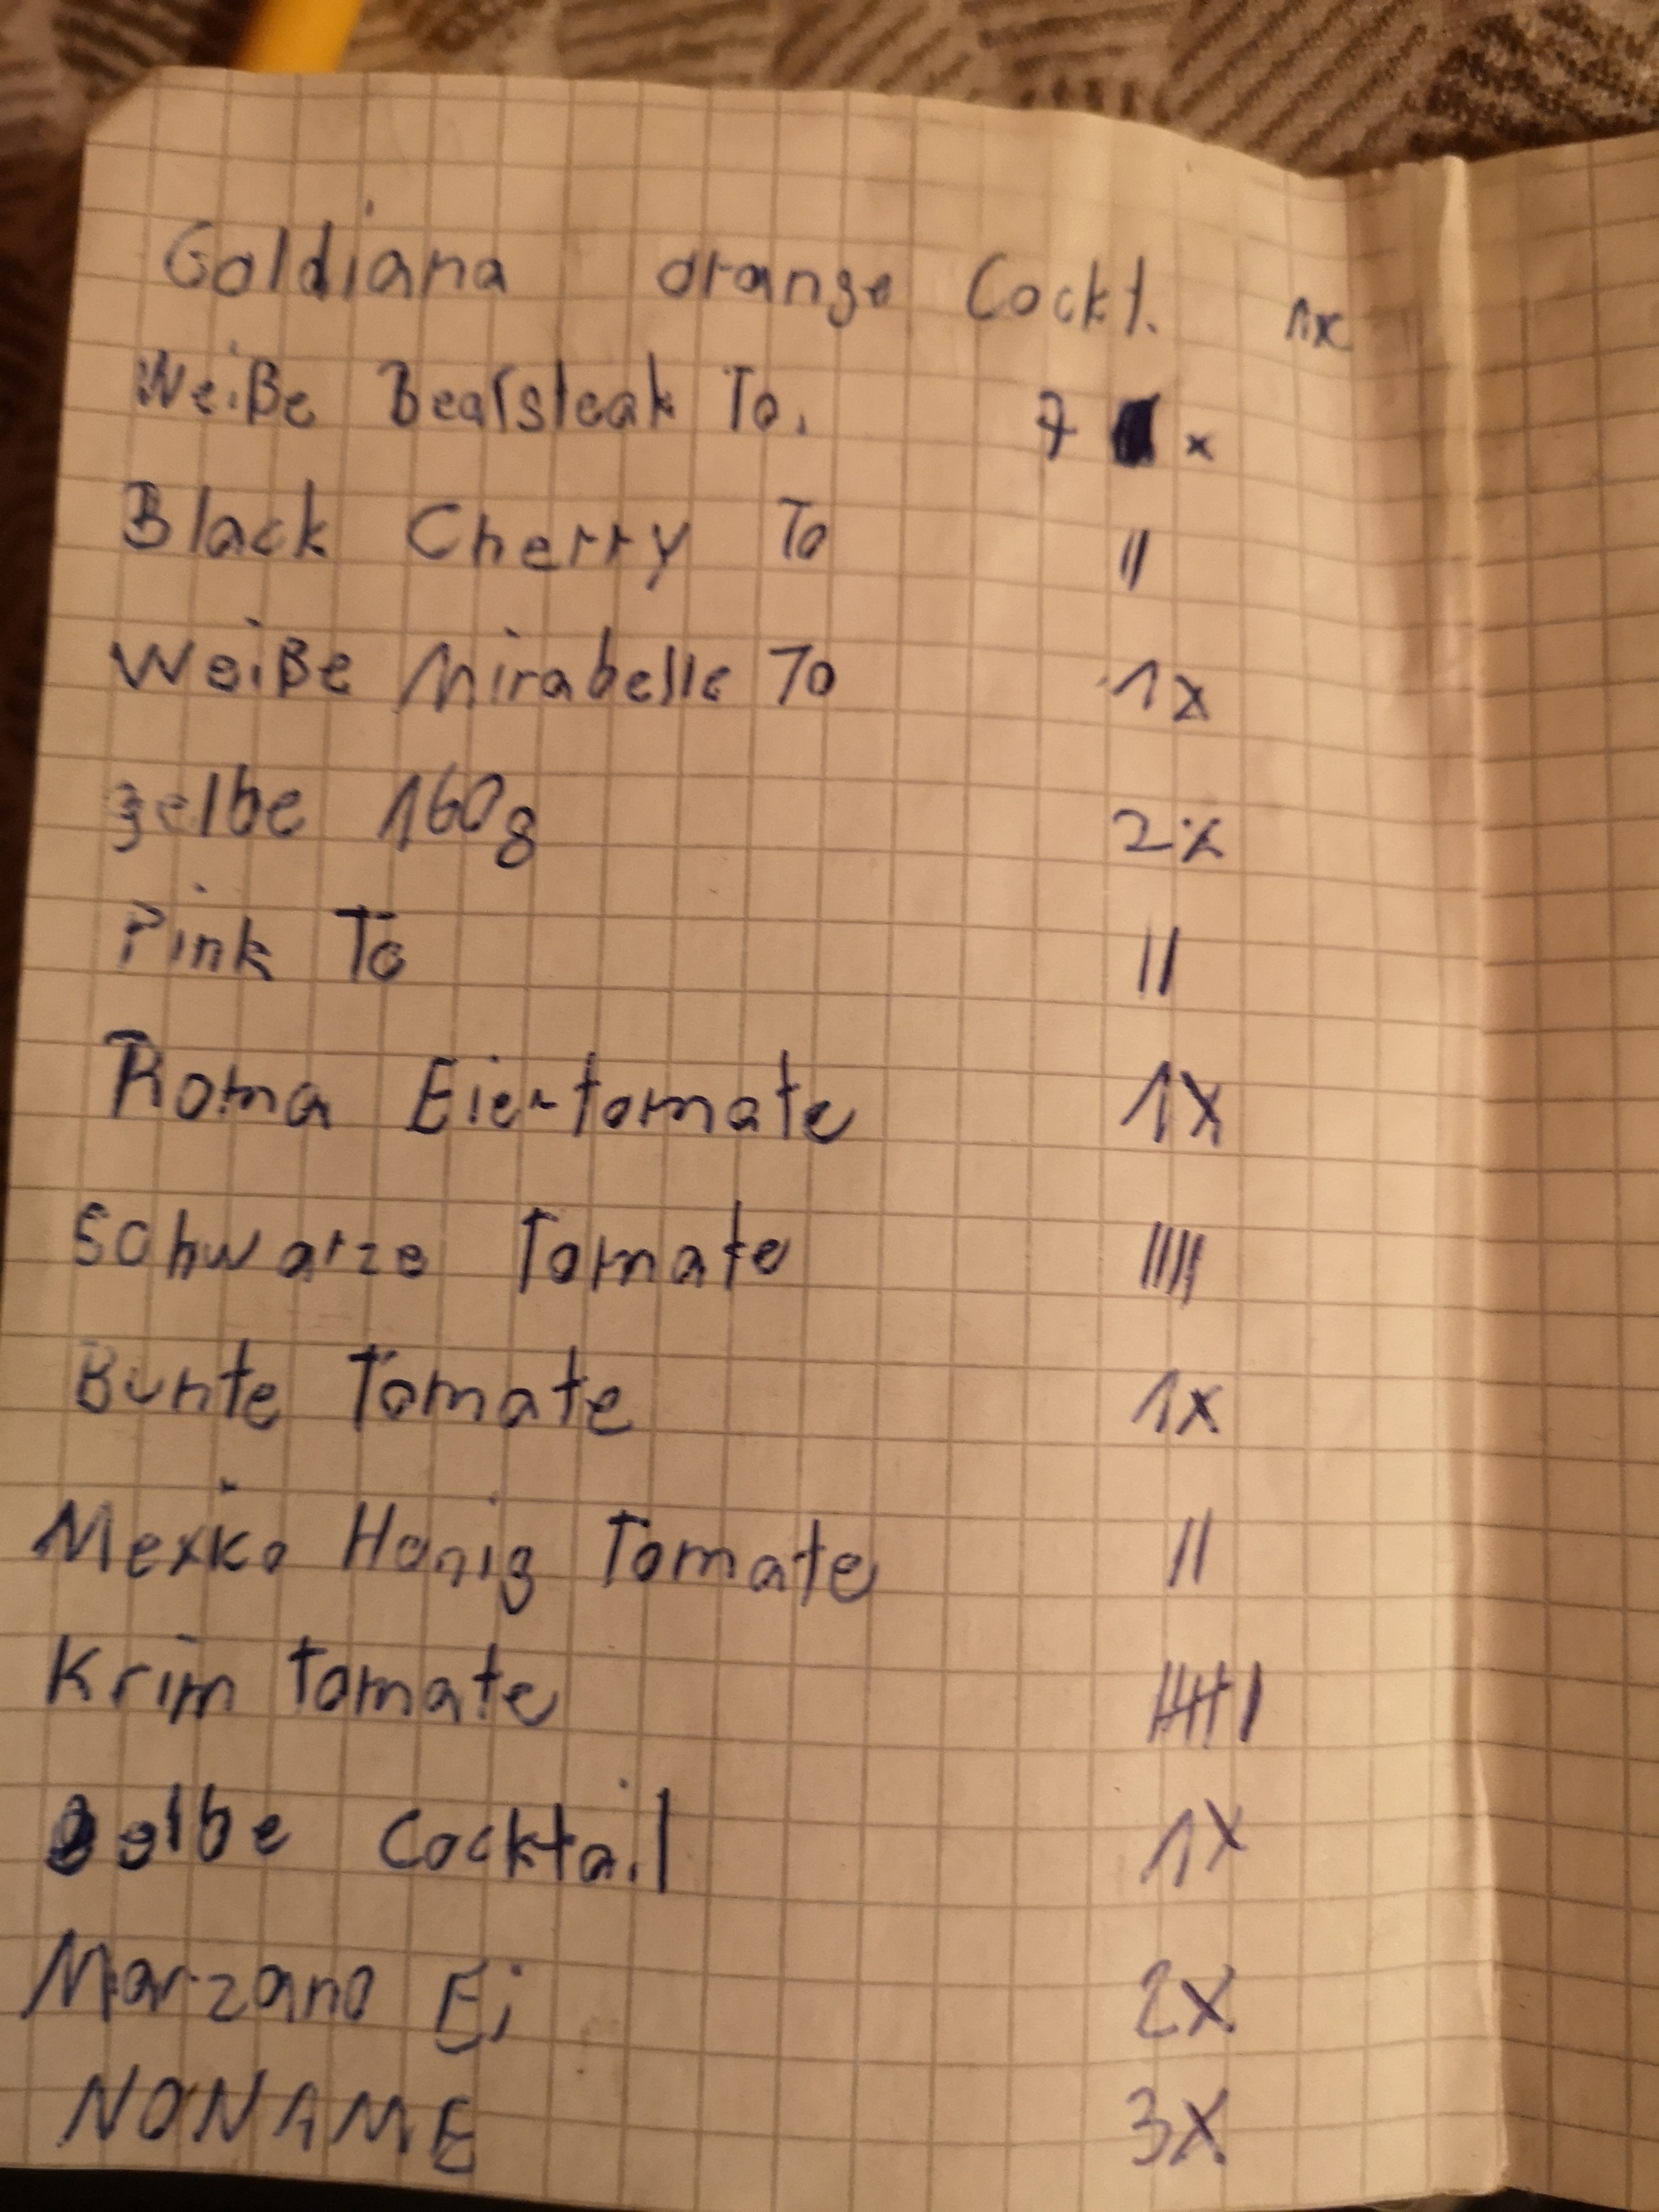 Goldiana orange Cockt. 1x
Weiße Beafsteak To. 7 x
Black Cherry To ||
Weiße Mirabelle To 1x
gelbe 160g 2x
Pink To ||
Roma Eiertomate 1x
Schwarze Tomate |||||
Bunte Tomate 1x
Mexiko Honig Tomate ||
Krim tomate |||||
Gelbe Cocktail 1x
Marzano Ei 2x
NONAME 3x